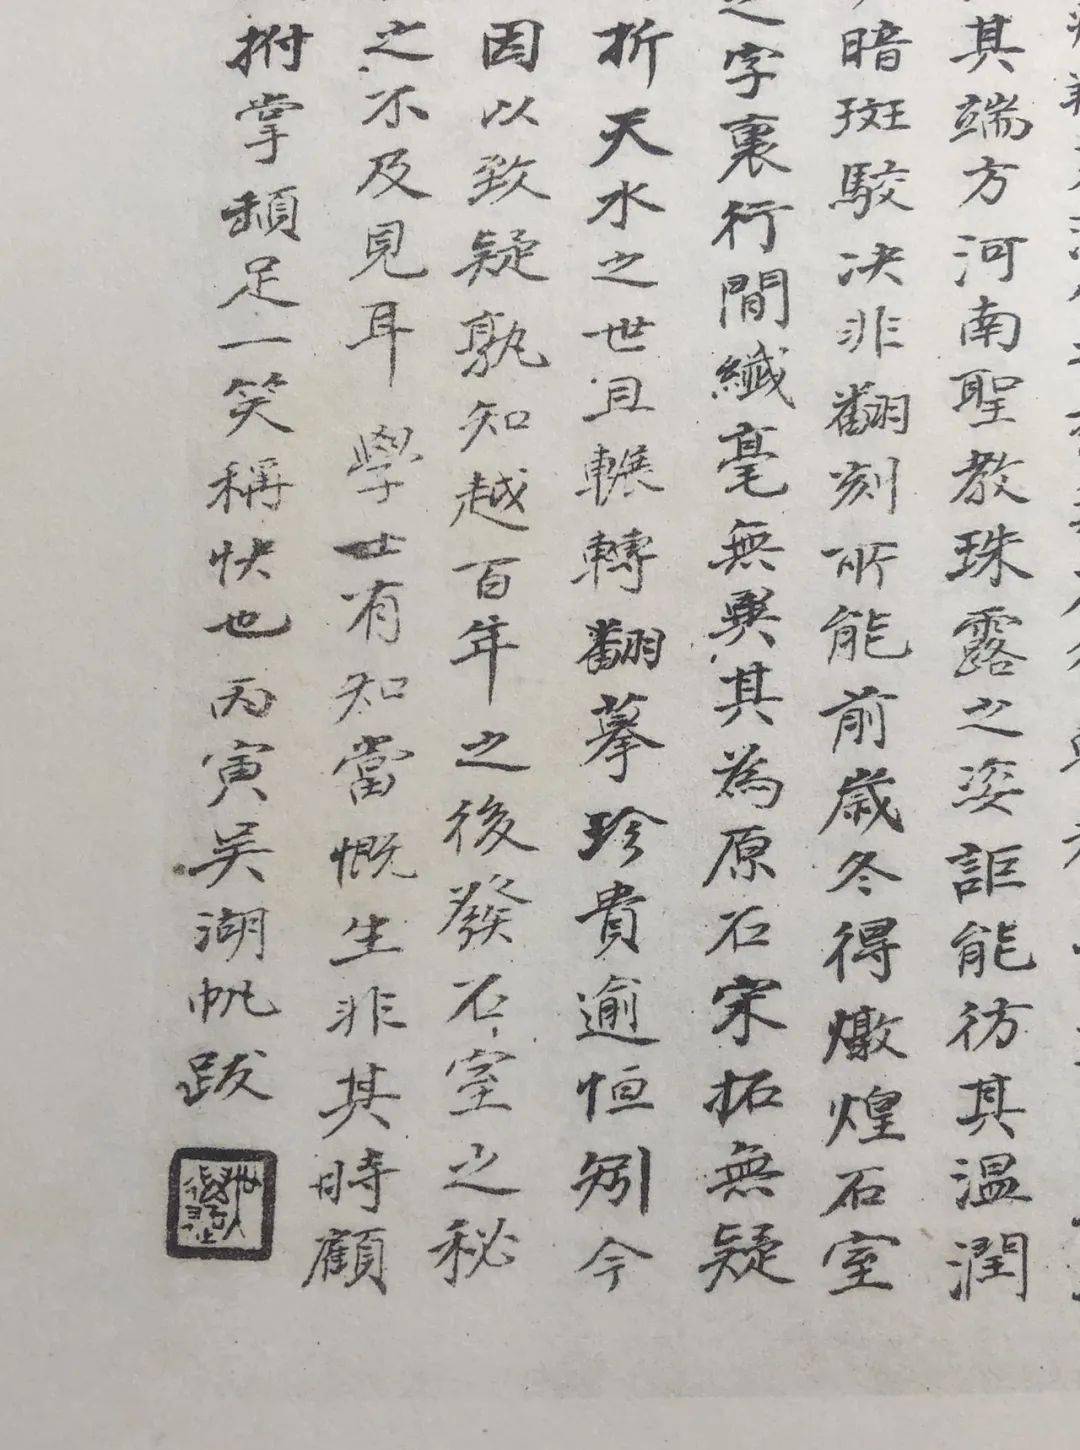 其端方河南聖教珠露之姿詎能彷其温潤
暗斑駁决非翻刻所能前歲冬得燉煌石室
之字裏行間纖毫無異其為原石宋拓無疑
折天水之世且輾轉翻摹珍貴逾恒矧今
因以致疑孰知越百年之後發石室之秘
之不及見耳學士有知當慨生非其時顧
拊掌頓足一笑稱快也丙寅吴湖帆跋